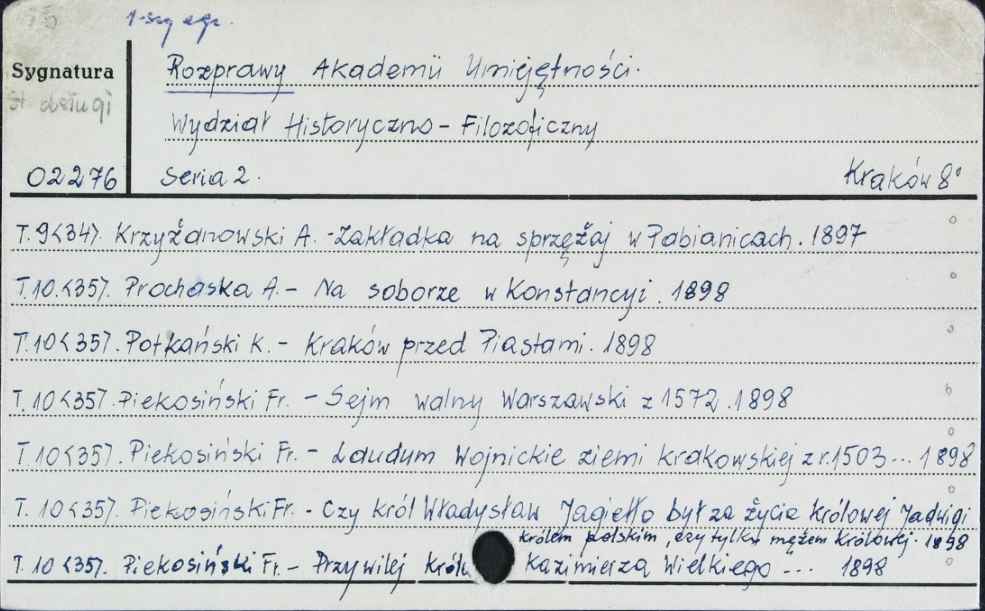 1-szy egz.
Sygnatura
Rozprawy Akademii Umiejętności.
Wydział Historyczno-Filozoficzny
02276
Seria 2. Kraków 8°
T. 9<34>. Krzyżanowski A. - Zakładka na sprzężaj w Pabianicach. 1897
T. 10.<35>. Prochaska A. - Na soborze w Konstancyi. 1898
T. 10<35>. Potkański K. - Kraków przed Piastami. 1898
T. 10<35>. Piekosiński Fr. - Sejm walny Warszawski z 1572. 1898
T 10<35>. Piekosiński Fr. - Laudum Wojnickie ziemi krakowskiej z r. 1503 ... 1898
T. 10<35>. Piekosiński Fr. - Czy król Władysław Jagiełło był za życia królowej Jadwigi
królem polskim, czy tylko mężem królowej. 1898
T. 10<35>. Piekosiński Fr. - Przywilej król Kazimierza Wielkiego --- 1898